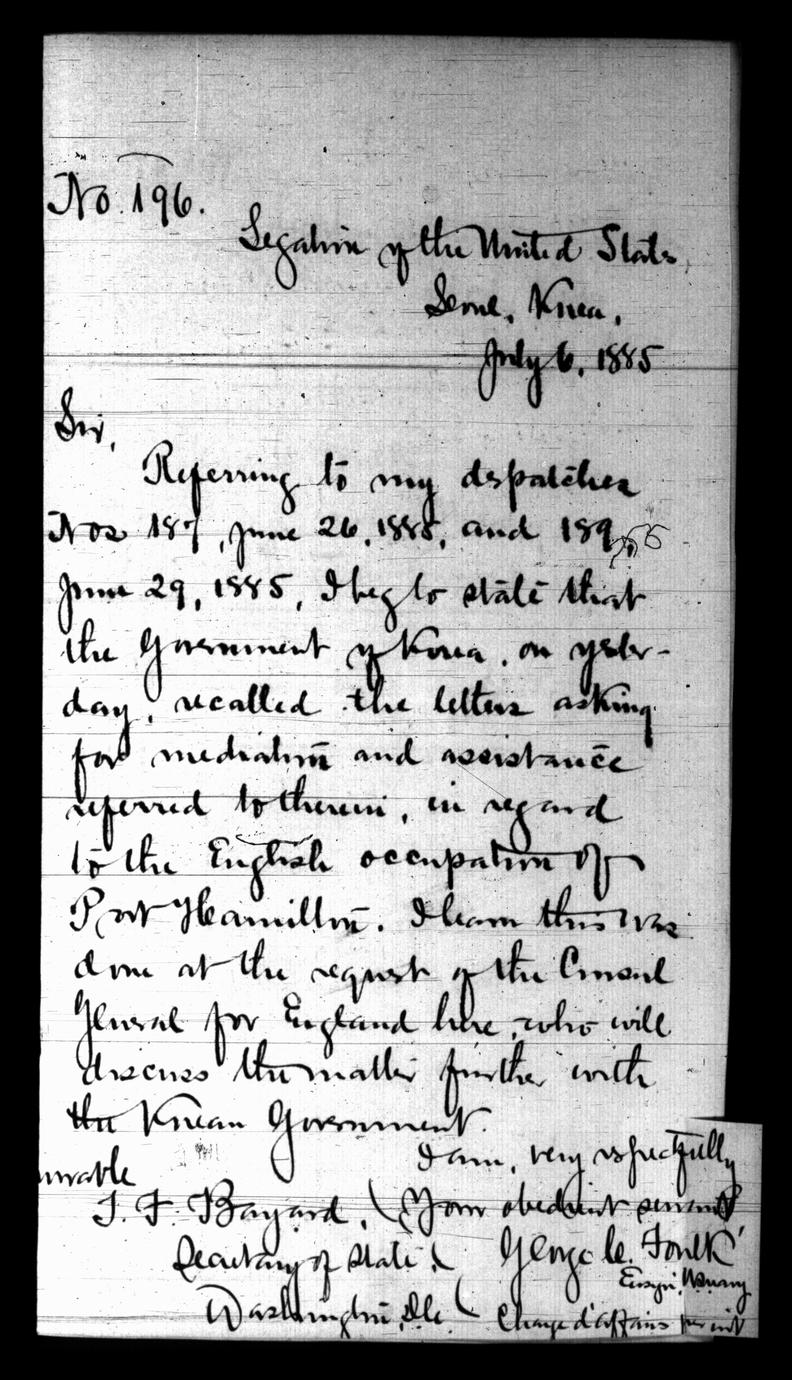 No. 196.
Legation of the United States
Seoul, Korea,
July 6, 1885
Sir,
Referring to my despatches
Nos 187, June 26, 1885, and 189,
June 29, 1885, I beg to state that
the Government of Korea, on yester-
day, recalled the letters asking
for mediation and assistance
referred to therein, in regard
to the English occupation of
Port Hamilton. I learn this was
done at the request of the Consul
General for England here, who will
discuss the matter further with
the Korean Government.
I am, very respectfully
Your obedient servant
George C. Foulk
Ensign, U.S. Navy
Chargé d'affaires
urable
T. F. Bayard,
Secretary of State
Washington, D.C.